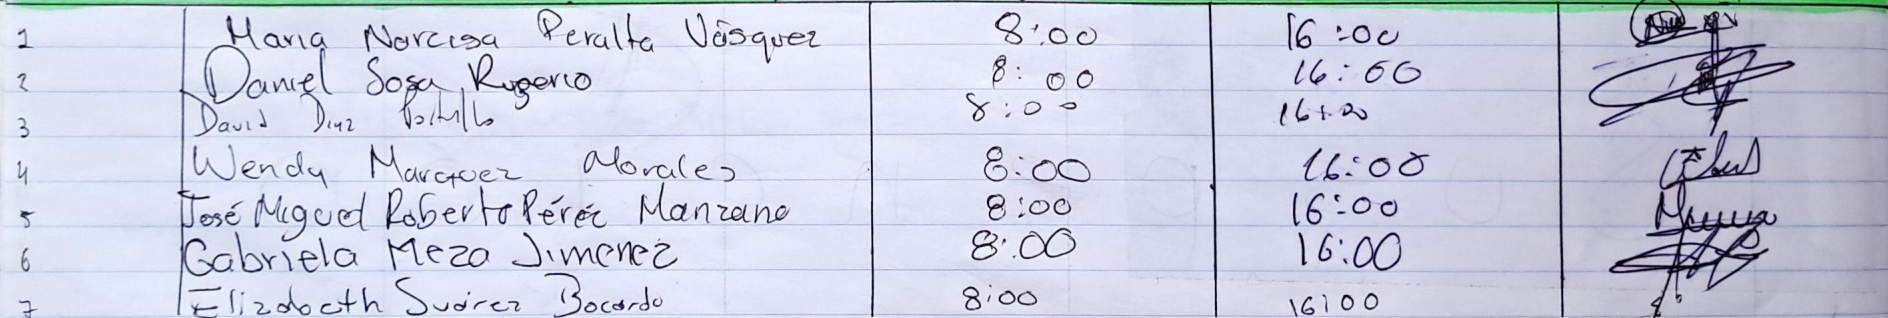 1 Maria Narcisa Peralta Vásquez 8:00 16:00
2 Daniel Sosa Rugerio 8:00 16:00
3 David Diaz Portillo 8:00 16:00
4 Wendy Marquez Morales 8:00 16:00
5 José Miguel Roberto Pérez Manzano 8:00 16:00
6 Gabriela Meza Jimenez 8:00 16:00
7 Elizabeth Suárez Bocardo 8:00 16:00